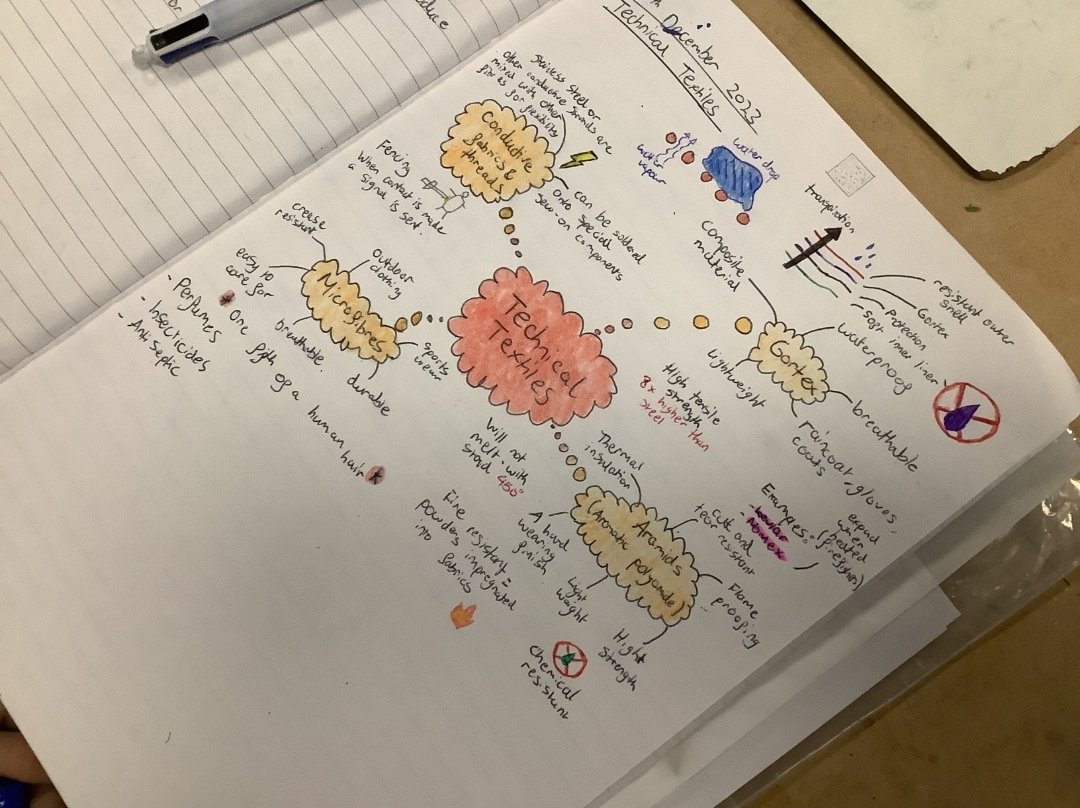 December 2023
Technical Textiles
Stainless steel or
other conductive strands are
mixed with other
fibres for flexibility
Conductive
fabrics &
threads
can be soldered
onto special
sew-on components
Fencing
When contact is made
a signal is sent.
water
vapour
water drop
transpiration
resistant outer
shell
Gortex
Protection
soft inner liner
composite
material
Gortex
waterproof
breathable
raincoat, gloves
coats
Lightweight
crease
resistant
Outdoor
clothing
easy to
care for
Microfibres
breathable
durable
sports
wear
One ffth of a human hair
- Perfumes
- Insecticides
- Anti septic
Technical
Textiles
High tensile
strength
8x higher than
steel
Will not
melt. with
stand 450°
Fire resistant =
powders impregnated
into fabrics
Thermal
insulation
Aramids
(Aromatic polyamide)
cut and
tear resistant
Examples:
- kevlar
- Nomex
expand
when
heated
(firefighters)
Flame
proofing
A hard
wearing
finish
Light
weight
Hight
Strength
chemical
resistant